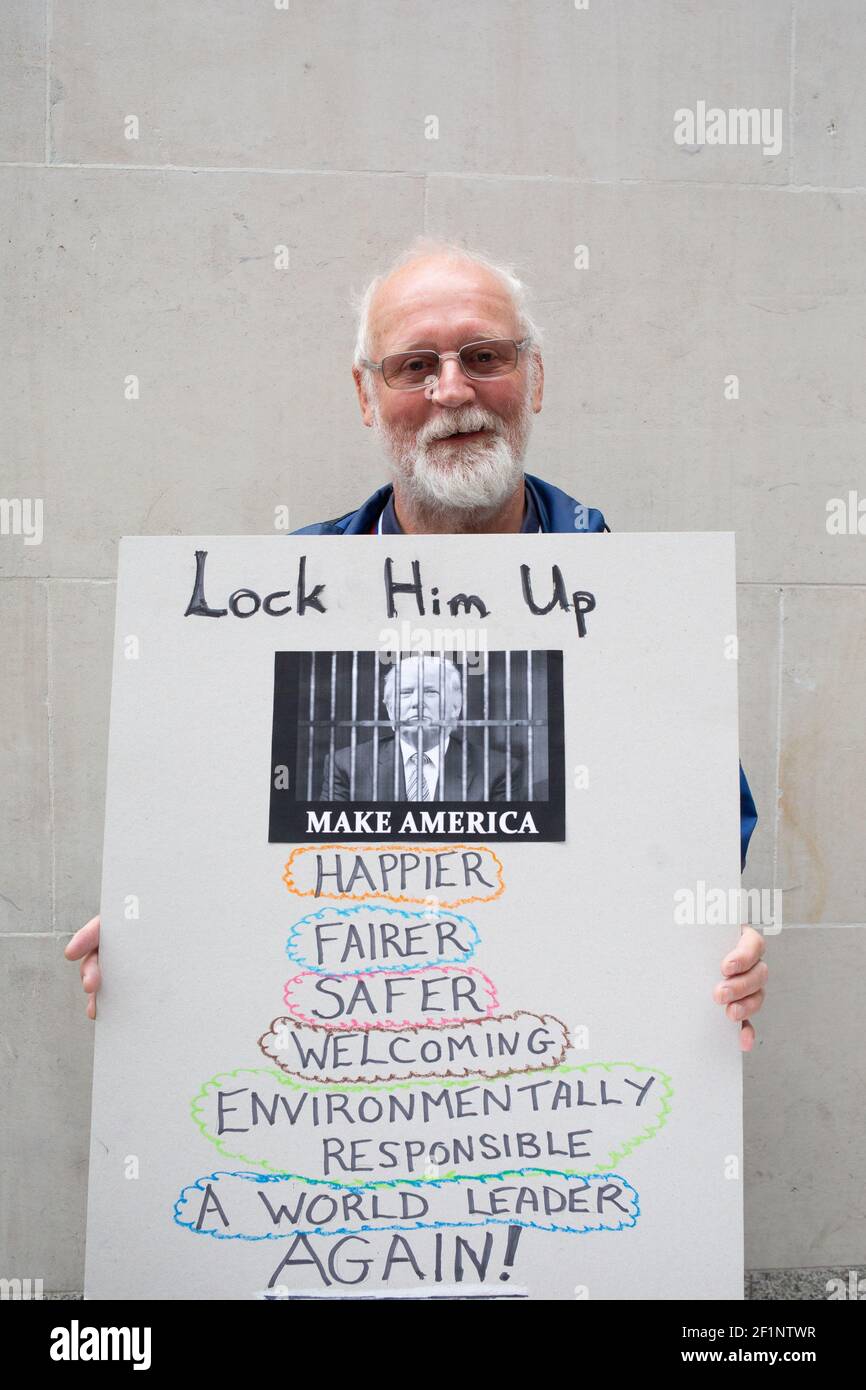 Lock Him Up
MAKE AMERICA
HAPPIER
FAIRER
SAFER
WELCOMING
ENVIRONMENTALLY
RESPONSIBLE
A WORLD LEADER
AGAIN!
alamy
Image ID: 2F1NTWR
www.alamy.com